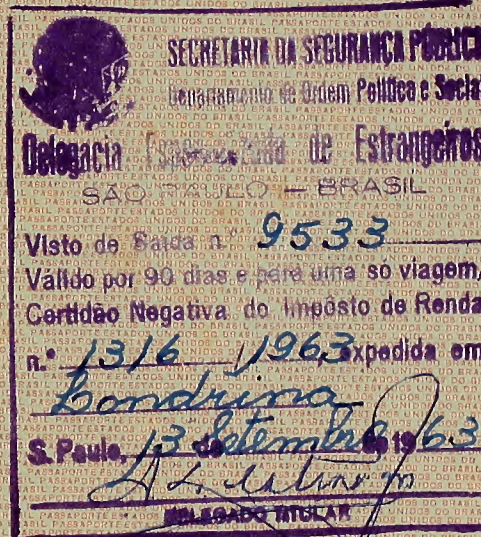 SECRETARIA DA SEGURANÇA PÚBLICA
Departamento de Ordem Política e Social
Delegacia Especializada de Estrangeiros
SÃO PAULO — BRASIL
Visto de Saída n.º 9533
Válido por 90 dias e para uma só viagem,
Certidão Negativa do Impôsto de Renda
n.º 1316 / 1963, expedida em
Londrina
S. Paulo, 13 de Setembro de 1963
DELEGADO TITULAR